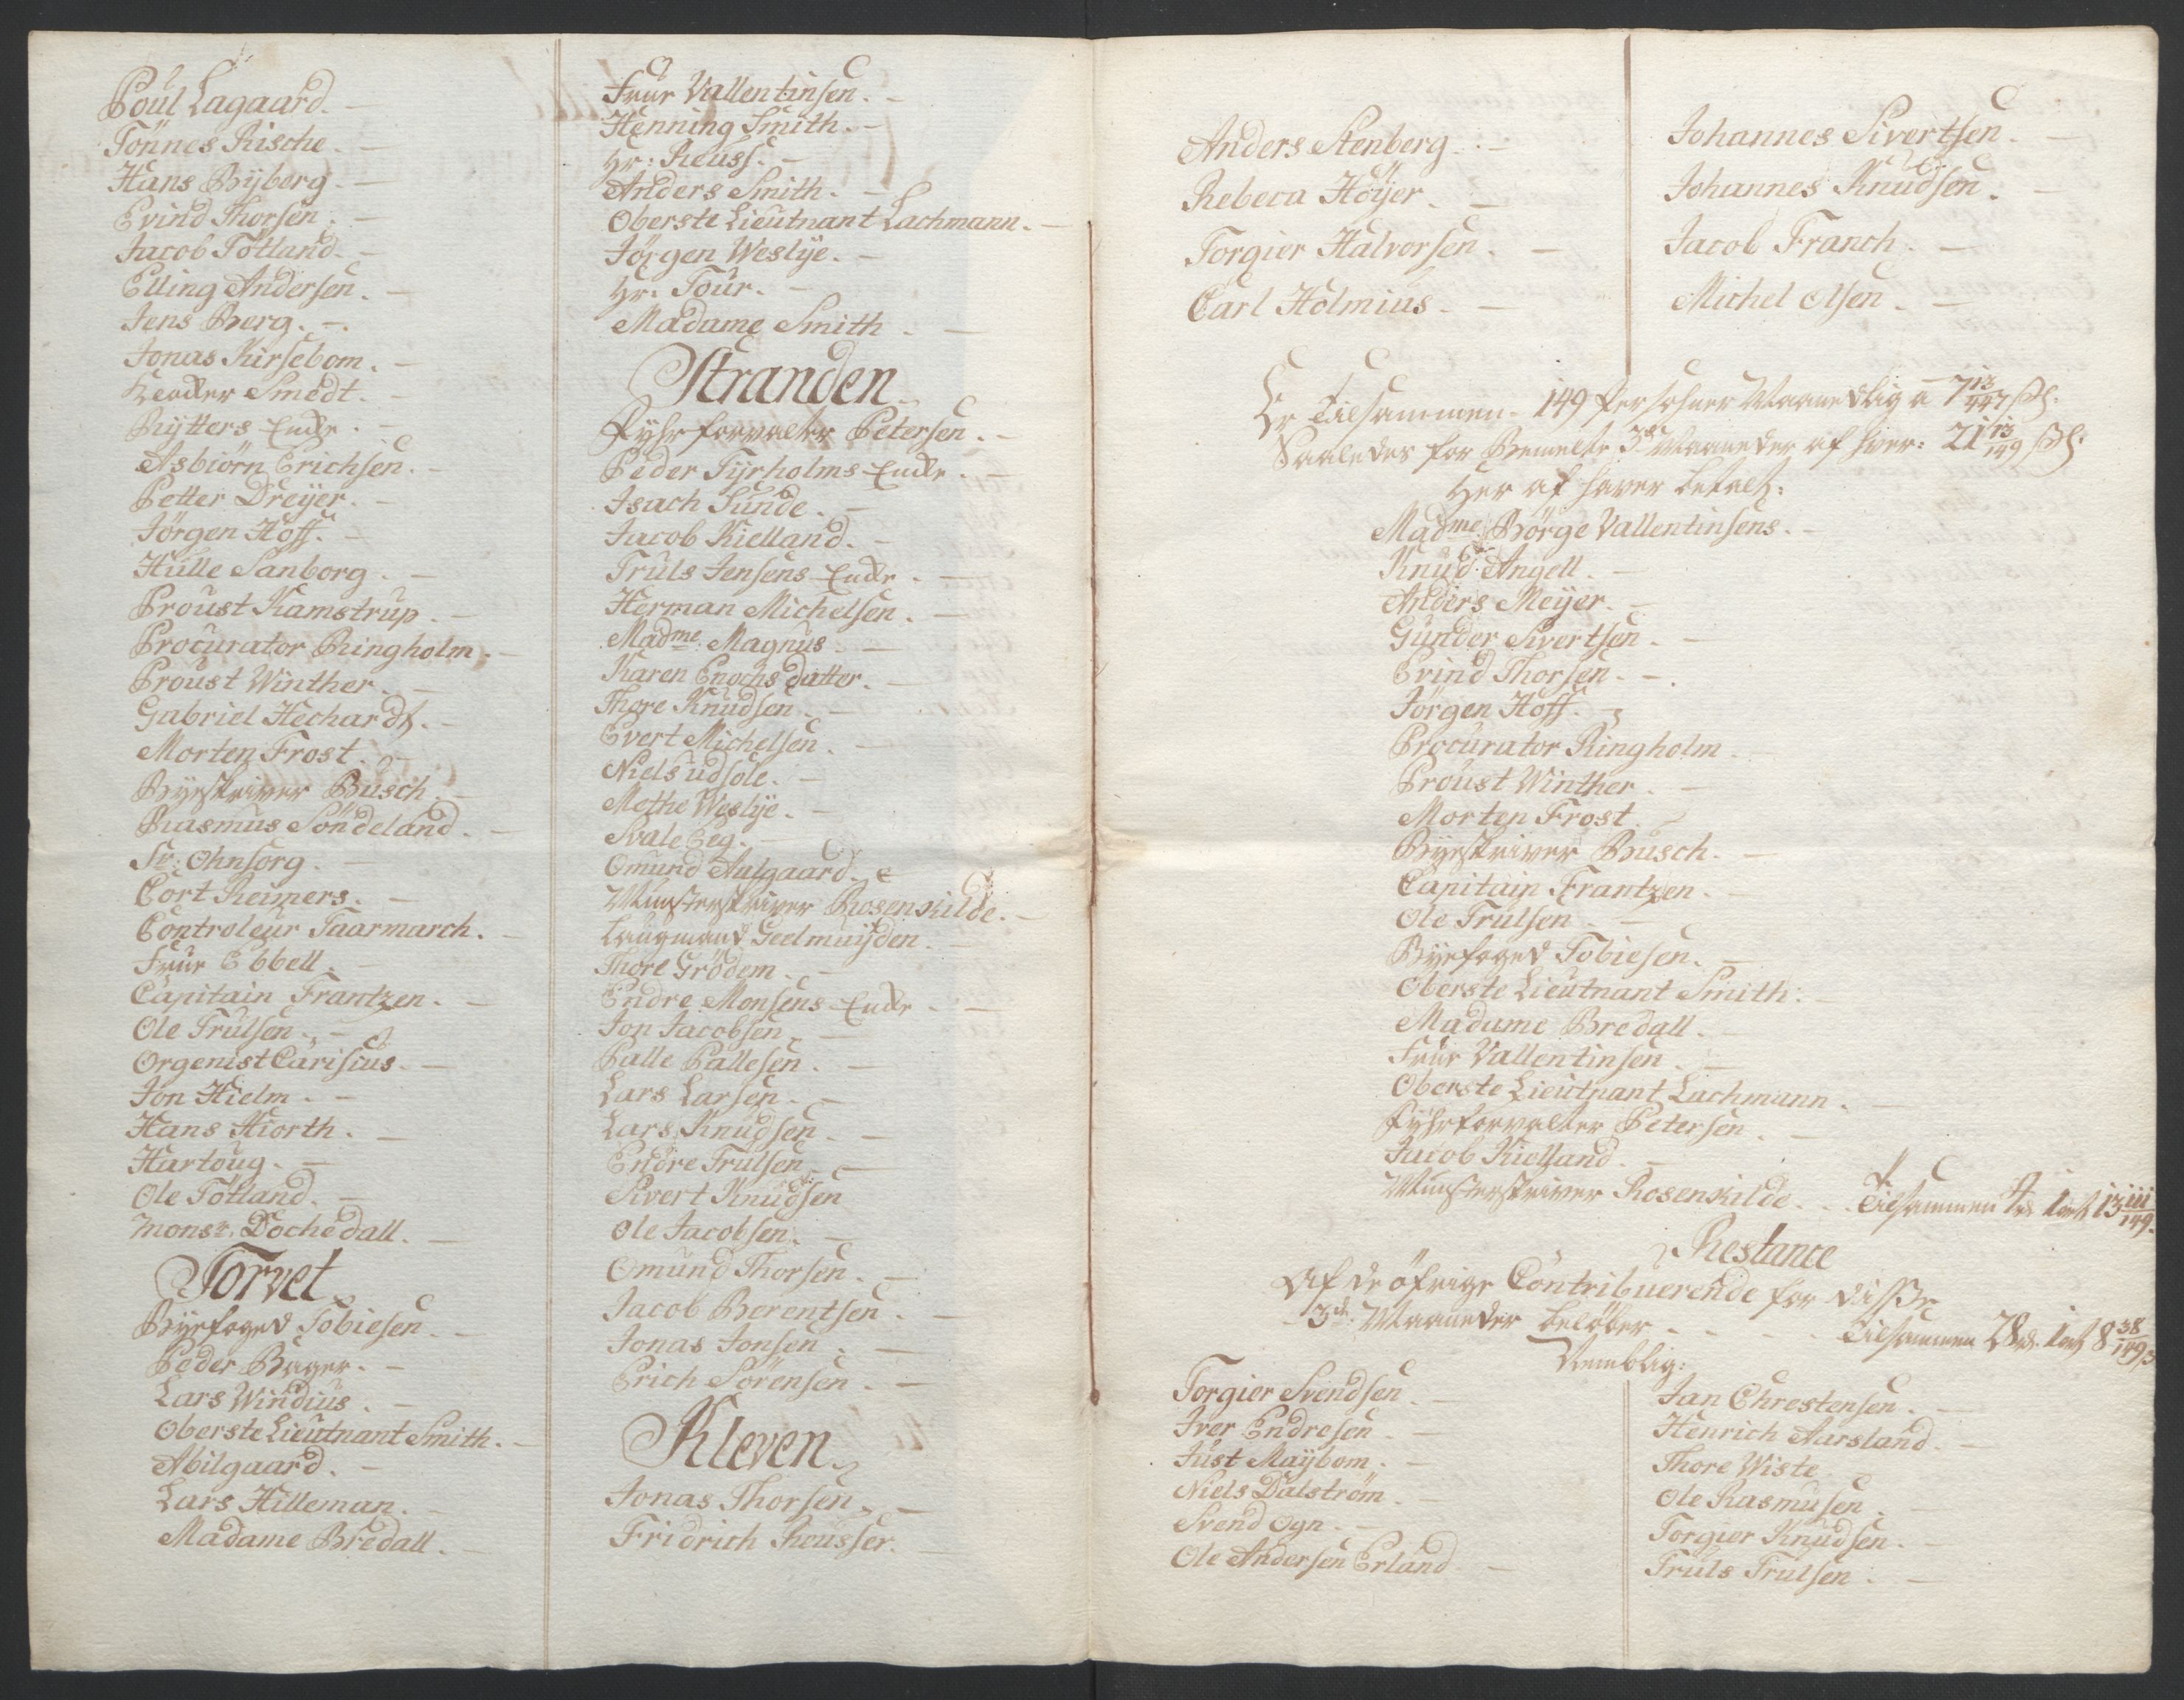 Poul Lagaard. -
Tönnes Rische. -
Hans Byberg. -
Evind Thorsen. -
Jacob Tötland. -
Elling Andersen. -
Jens Berg. -
Jonas Kirsebom. -
Smedt. -
Rytters Encke. -
Asbiörn Erichsen. -
Petter Dreyer. -
Jörgen Hoff. -
Hülle Sanborg. -
Proust Kamstrup. -
Procurator Ringholm. -
Proust Winther. -
Gabriel Hechardt. -
Morten Frost. -
Byeskriver Busch. -
Rasmus Söndeland. -
Sr: Ohnsorg. -
Cort Reimers. -
Controleur Taarmarch. -
Frue Ebbell. -
Capitain Frantzen. -
Ole Trulsen. -
Orgenist Carisius. -
Jon Hielm. -
Hans Hiorth. -
Hartoug. -
Ole Tötland. -
Monsr. Dochedall. -
Torvet
Byefoged Tobiesen. -
Peder Bager. -
Lars Windius. -
Oberste Lieutnant Smith. -
Abilgaard. -
Lars Hilleman. -
Madame Bredall. -
Frue Vallentinsen. -
Henning Smith. -
Hr: Reuss. -
Anders Smith. -
Oberste Lieutnant Lachmann. -
Jörgen Weslye. -
Hr. Tour. -
Madame Smith. -
Stranden
Fyhrforvalter Petersen. -
Peder Tyrholms Encke. -
Isach Sunde. -
Jacob Kielland. -
Truls Jensens Encke. -
Herman Michelsen. -
Madme. Magnus. -
Karen Enochsdatter. -
Thore Knudsen. -
Evert Michelsen. -
Niels udsole. -
Methe Weslye. -
Svale Eeg. -
Omund Aulgaard. -
Munsterskriver Rosenkilde. -
Laugmand Geelmuijden. -
Thore Grödem. -
Endre Monsens Encke. -
Jon Jacobsen. -
Palle Pallesen. -
Lars Larsen. -
Lars Knudsen. -
Endre Trulsen. -
Sivert Knudsen
Ole Jacobsen. -
Omund Thorsen. -
Jacob Berentsen. -
Jonas Jonsen. -
Erich Sörensen. -
Kleven
Jonas Thorsen. -
Fridrich Reusser. -
Anders Stenberg. -
Rebeca Höyer. -
Torgier Halvorsen. -
Carl Holmius. -
Johannes Sivertsen. -
Johannes Knudsen. -
Jacob Franch. -
Michel Olsen. -
Er Tilsammen. 149 Persohner Maanedlig a 7 13/447 ß.
Saaledes for Bemelte 3de Maaneder af hver: 21 13/149 ß.
Her af haver betalt:
Madme. Börge Vallentinsens. -
Knud Angell. -
Anders Meyer. -
Gunder Sivertsen. -
Evind Thorsen. -
Jörgen Hoff. -
Procurator Ringholm. -
Proust Winther. -
Morten Frost. -
Byeskriver Busch. -
Capitain Frantzen. -
Ole Trulsen. -
Byefoged Tobiesen. -
Oberste Lieutnant Smith. -
Madame Bredall. -
Frue Vallentinsen. -
Oberste Lieutnant Lachmann. -
Fyhrforvalter Petersen. -
Jacob Kielland. -
Munsterskriver Rosenkilde. - Tilsammen 4 rd 1 ort 13 111/149.
Restance
Af de öfrige Contribuerende for disse
3de Maaneder belöber - - - - Tilsammen 28 rd. 1 ort 8 38/149 ß
Nemblig:
Torgier Svendsen. -
Iver Endresen. -
Just Maybom. -
Niels Dalström. -
Svend Ogn. -
Ole Andersen Erland. -
Jan Chrestensen. -
Henrich Aarsland. -
Thore Wiste
Ole Rasmusen. -
Torgier Knudsen. -
Truls Trulsen. -